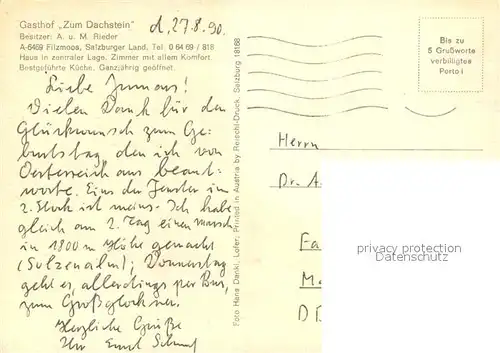 Gasthof „Zum Dachstein"
Besitzer: A. u. M. Rieder
A-5469 Filzmoos, Salzburger Land, Tel. 0 64 69 / 818
Haus in zentraler Lage. Zimmer mit allem Komfort.
Bestgeführte Küche. Ganzjährig geöffnet.
d. 27.8.90.
Liebe
Vielen Dank für den
Glückwunsch zum Ge-
burtstag, den ich von
Oesterreich aus beant-
worte. Eins der Fenster im
2. Stock ist meins. Ich habe
gleich am 2. Tag einen Marsch
in 1800 m Höhe gemacht
(Sulzenalm); Donnerstag
geht es, allerdings per Bus,
zum Großglockner.
Herzliche Grüße
Ihr Ernst
Foto Hans Dankl, Lofer; Printed in Austria by Reischl-Druck, Salzburg 18168
Bis zu
5 Grußworte
verbilligtes
Porto!
Herrn
Dr. A
Fa
M
D D
privacy protection
Datenschutz